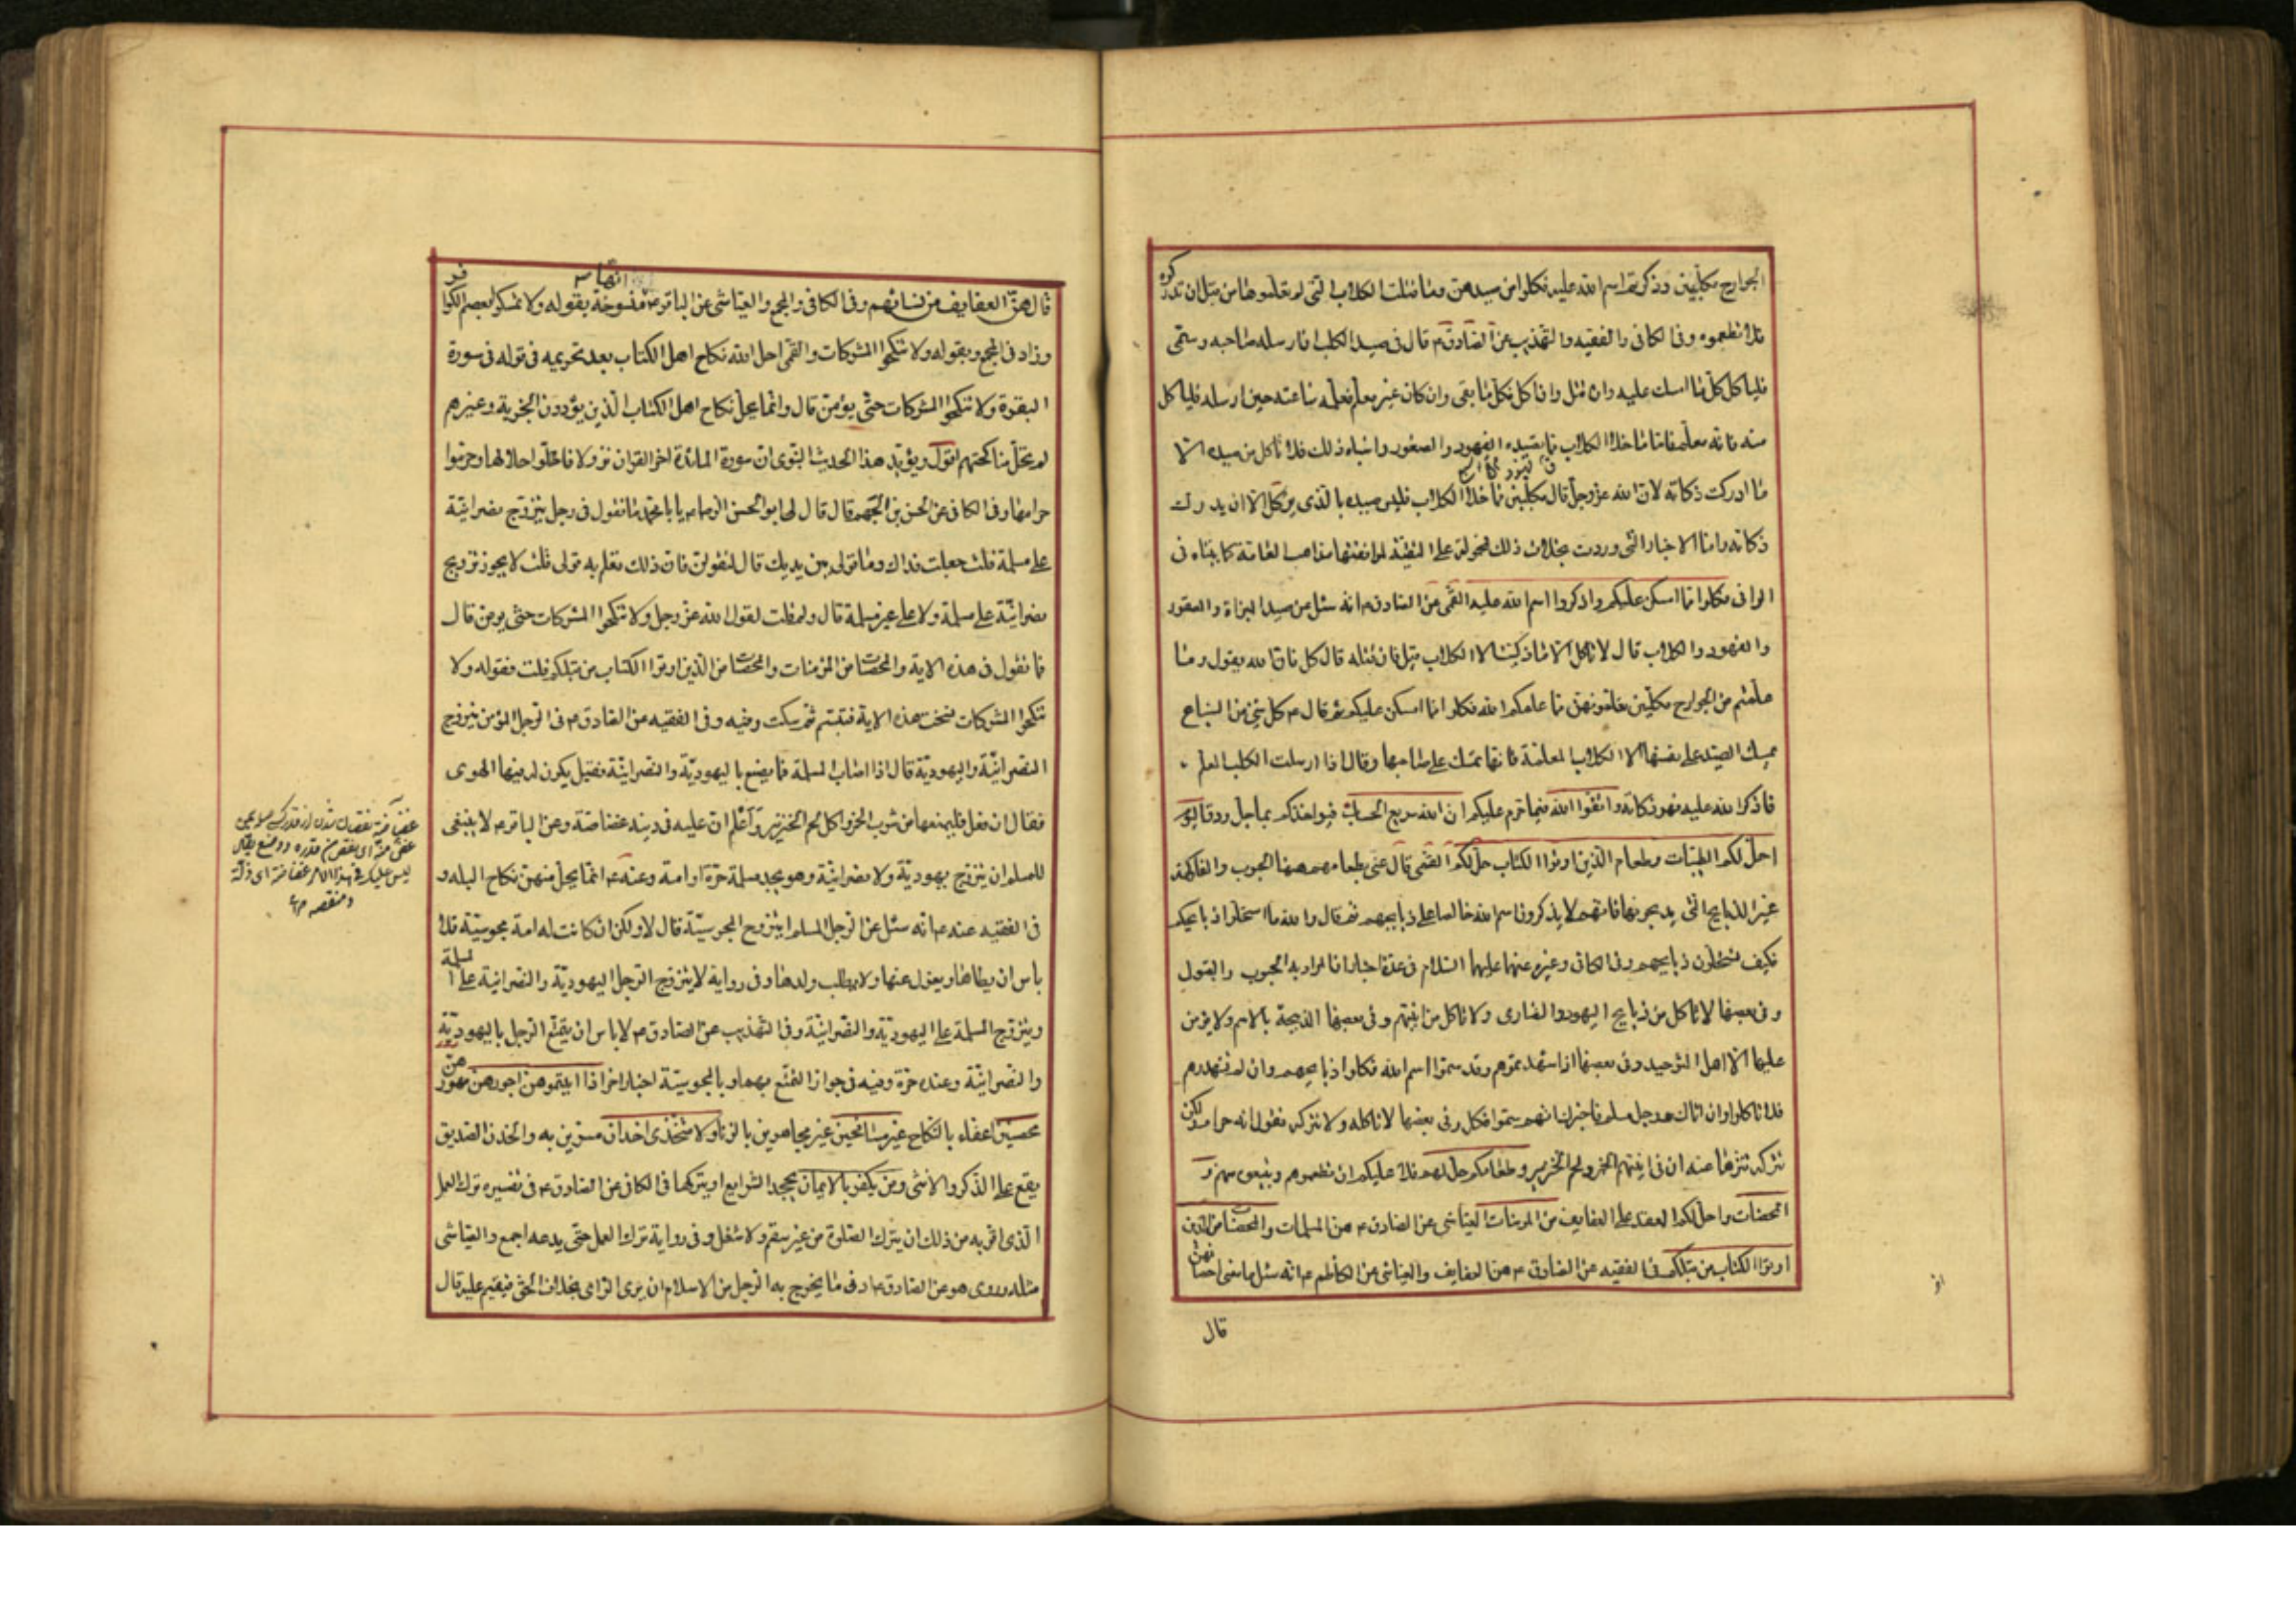 الجوارح مكلّبين وذكرتم اسم الله عليه فكلوا من صيدهن وما قتلت الكلاب التي لم تعلّموها من قبل ان تدركوه
فلا تطعموه وفى الكافى والفقيه والتهذيب عن الصّادق ع قال فى صيد الكلب ان ارسله صاحبه وسمّى
فلياكل كلّ ما امسك عليه وان قتل وان اكل فكل ما بقى وان كان غير معلّم فعلّمه ساعته حين ارسله فلياكل
منه فانه معلّم فامّا ما خلا الكلاب مما يصيده الفهود والصقور واشباه ذلك فلا تاكل من صيده الّا
ما ادركت ذكاته لان الله عزوجل قال مكلّبين فما خلا الكلاب فليس صيده بالذى يوكل الّا ان يدرك
ذكاته وامّا الاخبار التى وردت بخلاف ذلك فمحمولة على التقيّة لموافقتها مذاهب العامّة كما بيّناه فى
الوافى فكلوا ممّا امسكن عليكم واذكروا اسم الله عليه القمّى عن الصّادق ع انه سئل عن صيد البزاة والصقور
والفهود والكلاب قال لا تاكل الّا ما ذكيت الا الكلاب قيل فان قتله قال كل فان الله يقول وما
علّمتم من الجوارح مكلّبين تعلّمونهنّ ممّا علمكم الله فكلوا ممّا امسكن عليكم ثم قال ع كل شئ من السّباع
يمسك الصيد على نفسها الا الكلاب المعلمة فانّها تمسك على صاحبها وقال اذا ارسلت الكلب المعلّم
فاذكر الله عليه فهو ذكاته واتقوا الله فيما حرّم عليكم ان الله سريع الحساب فيواخذكم بما جلّ ودقّ اليوم
احلّ لكم الطيّبات وطعام الّذين اوتوا الكتاب حلّ لكم القمّى قال عنى بطعامهم ههنا الحبوب والفاكهة
غير الذبايح التى يذبحونها فانهم لا يذكرون اسم الله خالصا على ذبايحهم ثم قال والله ما استحلّوا ذبايحكم
فكيف تستحلّون ذبايحهم وفى الكافى وغيره عنهما عليهما السّلام فى عدّة اخبار انّ المراد به الحبوب والبقول
وفى بعضها لا تاكل من ذبايح اليهود والنصارى ولا تاكل من آنيتهم وفى بعضها الذبيحة بالاسم ولا يؤمن
عليها الّا اهل التوحيد وفى بعضها اذا شهدتموهم وقد سمّوا اسم الله فكلوا ذبايحهم وان لم تشهدهم
فلا تاكلوا وان اتاك رجل مسلم فاخبرك انهم سمّوا فكل وفى بعضها لا تاكله ولا تتركه تقول انه حرام ولكن
تتركه تنزّها عنه ان فى آنيتهم الخمر ولحم الخنزير وطعامكم حلّ لهم فلا عليكم ان تطعموهم وتبيعوه منهم و
المحصنات واحلّ لكم العقد على العفايف من المؤمنات العياشى عن الصادق ع هنّ المسلمات والمحصنات من الذين
اوتوا الكتاب من قبلكم فى الفقيه عن الصادق ع هنّ العفايف والعياشى عن الكاظم ع انّه سئل ما معنى احصانهنّ
قال
قال هنّ العفايف من نسائهم وفى الكافى والمجمع والعيّاشى عن الباقر ع انّها منسوخة بقوله ولا تمسكوا بعصم الكوافر
وزاد فى المجمع وبقوله ولا تنكحوا المشركات والقمّى احلّ الله نكاح اهل الكتاب بعد تحريمه فى قوله فى سورة
البقرة ولا تنكحوا المشركات حتّى يؤمنّ قال وانّما يحلّ نكاح اهل الكتاب الّذين يؤدون الجزية وغيرهم
لم تحلّ مناكحتهم اقول ويؤيّد هذا الحديث النّبوى ان سورة المائدة اخر القران نزولا فاحلّوا حلالها وحرّموا
حرامها وفى الكافى عن الحسن بن الجهم قال قال لى ابو الحسن الرضا ع يا با محمّد ما تقول فى رجل يتزوّج نصرانيّة
على مسلمة قلت جعلت فداك وما قولى بين يديك قال لتقولنّ فان ذلك تعلم به قولى قلت لا يجوز تزويج
نصرانيّة على مسلمة ولا على غير مسلمة قال ولم قلت لقول الله عزّ وجل ولا تنكحوا المشركات حتّى يومنّ قال
فما تقول فى هذه الاية والمحصنات من المؤمنات والمحصنات من الّذين اوتوا الكتاب من قبلكم قلت فقوله ولا
تنكحوا المشركات نسخت هذه الاية فتبسّم ثمّ سكت وفيه وفى الفقيه عن الصّادق ع فى الرّجل المؤمن يتزوّج
النصرانيّة واليهوديّة قال اذا اصاب المسلمة فما يصنع باليهوديّة والنصرانيّة فقيل يكون له فيها الهوى
فقال ان فعل فليمنعها من شرب الخمر واكل لحم الخنزير واعلم انّ عليه فى دينه غضاضة وعن الباقر ع لا ينبغى
للمسلم ان يتزوّج يهوديّة ولا نصرانيّة وهو يجد مسلمة حرّة او امة وعنه ع انّما يحلّ منهنّ نكاح البله و
فى الفقيه عنه ع انّه سئل عن الرّجل المسلم ايتزوّج المجوسيّة قال لا ولكن ان كانت له امة مجوسيّة فلا
باس ان يطاها ويعزل عنها ولا يطلب ولدها وفى رواية لا يتزوّج الرّجل اليهوديّة والنصرانيّة على المسلمة
ويتزوّج المسلمة على اليهوديّة والنّصرانيّة وفى التّهذيب عن الصّادق ع لا باس ان يتمتّع الرّجل باليهوديّة
والنصرانيّة وعنده حرّة وفيه فى جواز التمتّع بهما وبالمجوسيّة اخبار اخر اذا اتيتموهنّ اجورهنّ مهورهنّ
محصنين اعفّاء بالنّكاح غير مسافحين غير مجاهرين بالزنا ولا متّخذى اخدان مسرّين به والخدن الصّديق
يقع على الذكر والانثى ومن يكفر بالايمان بجحد الشرايع او بتركها فى الكافى عن الصّادق ع فى تفسيره ترك العمل
الّذى اقرّ به من ذلك ان يترك الصّلوة من غير سقم ولا شغل وفى رواية ترك العمل حتّى يدعه اجمع والعيّاشى
مثله وروى هو عن الصّادق ع ادنى ما يخرج به الرّجل من الاسلام ان يرى الرّاى بخلاف الحقّ فيقيم عليه قال
ليس عليك فى هذا الامر غضاضة اى ذلّة
ومنقصه